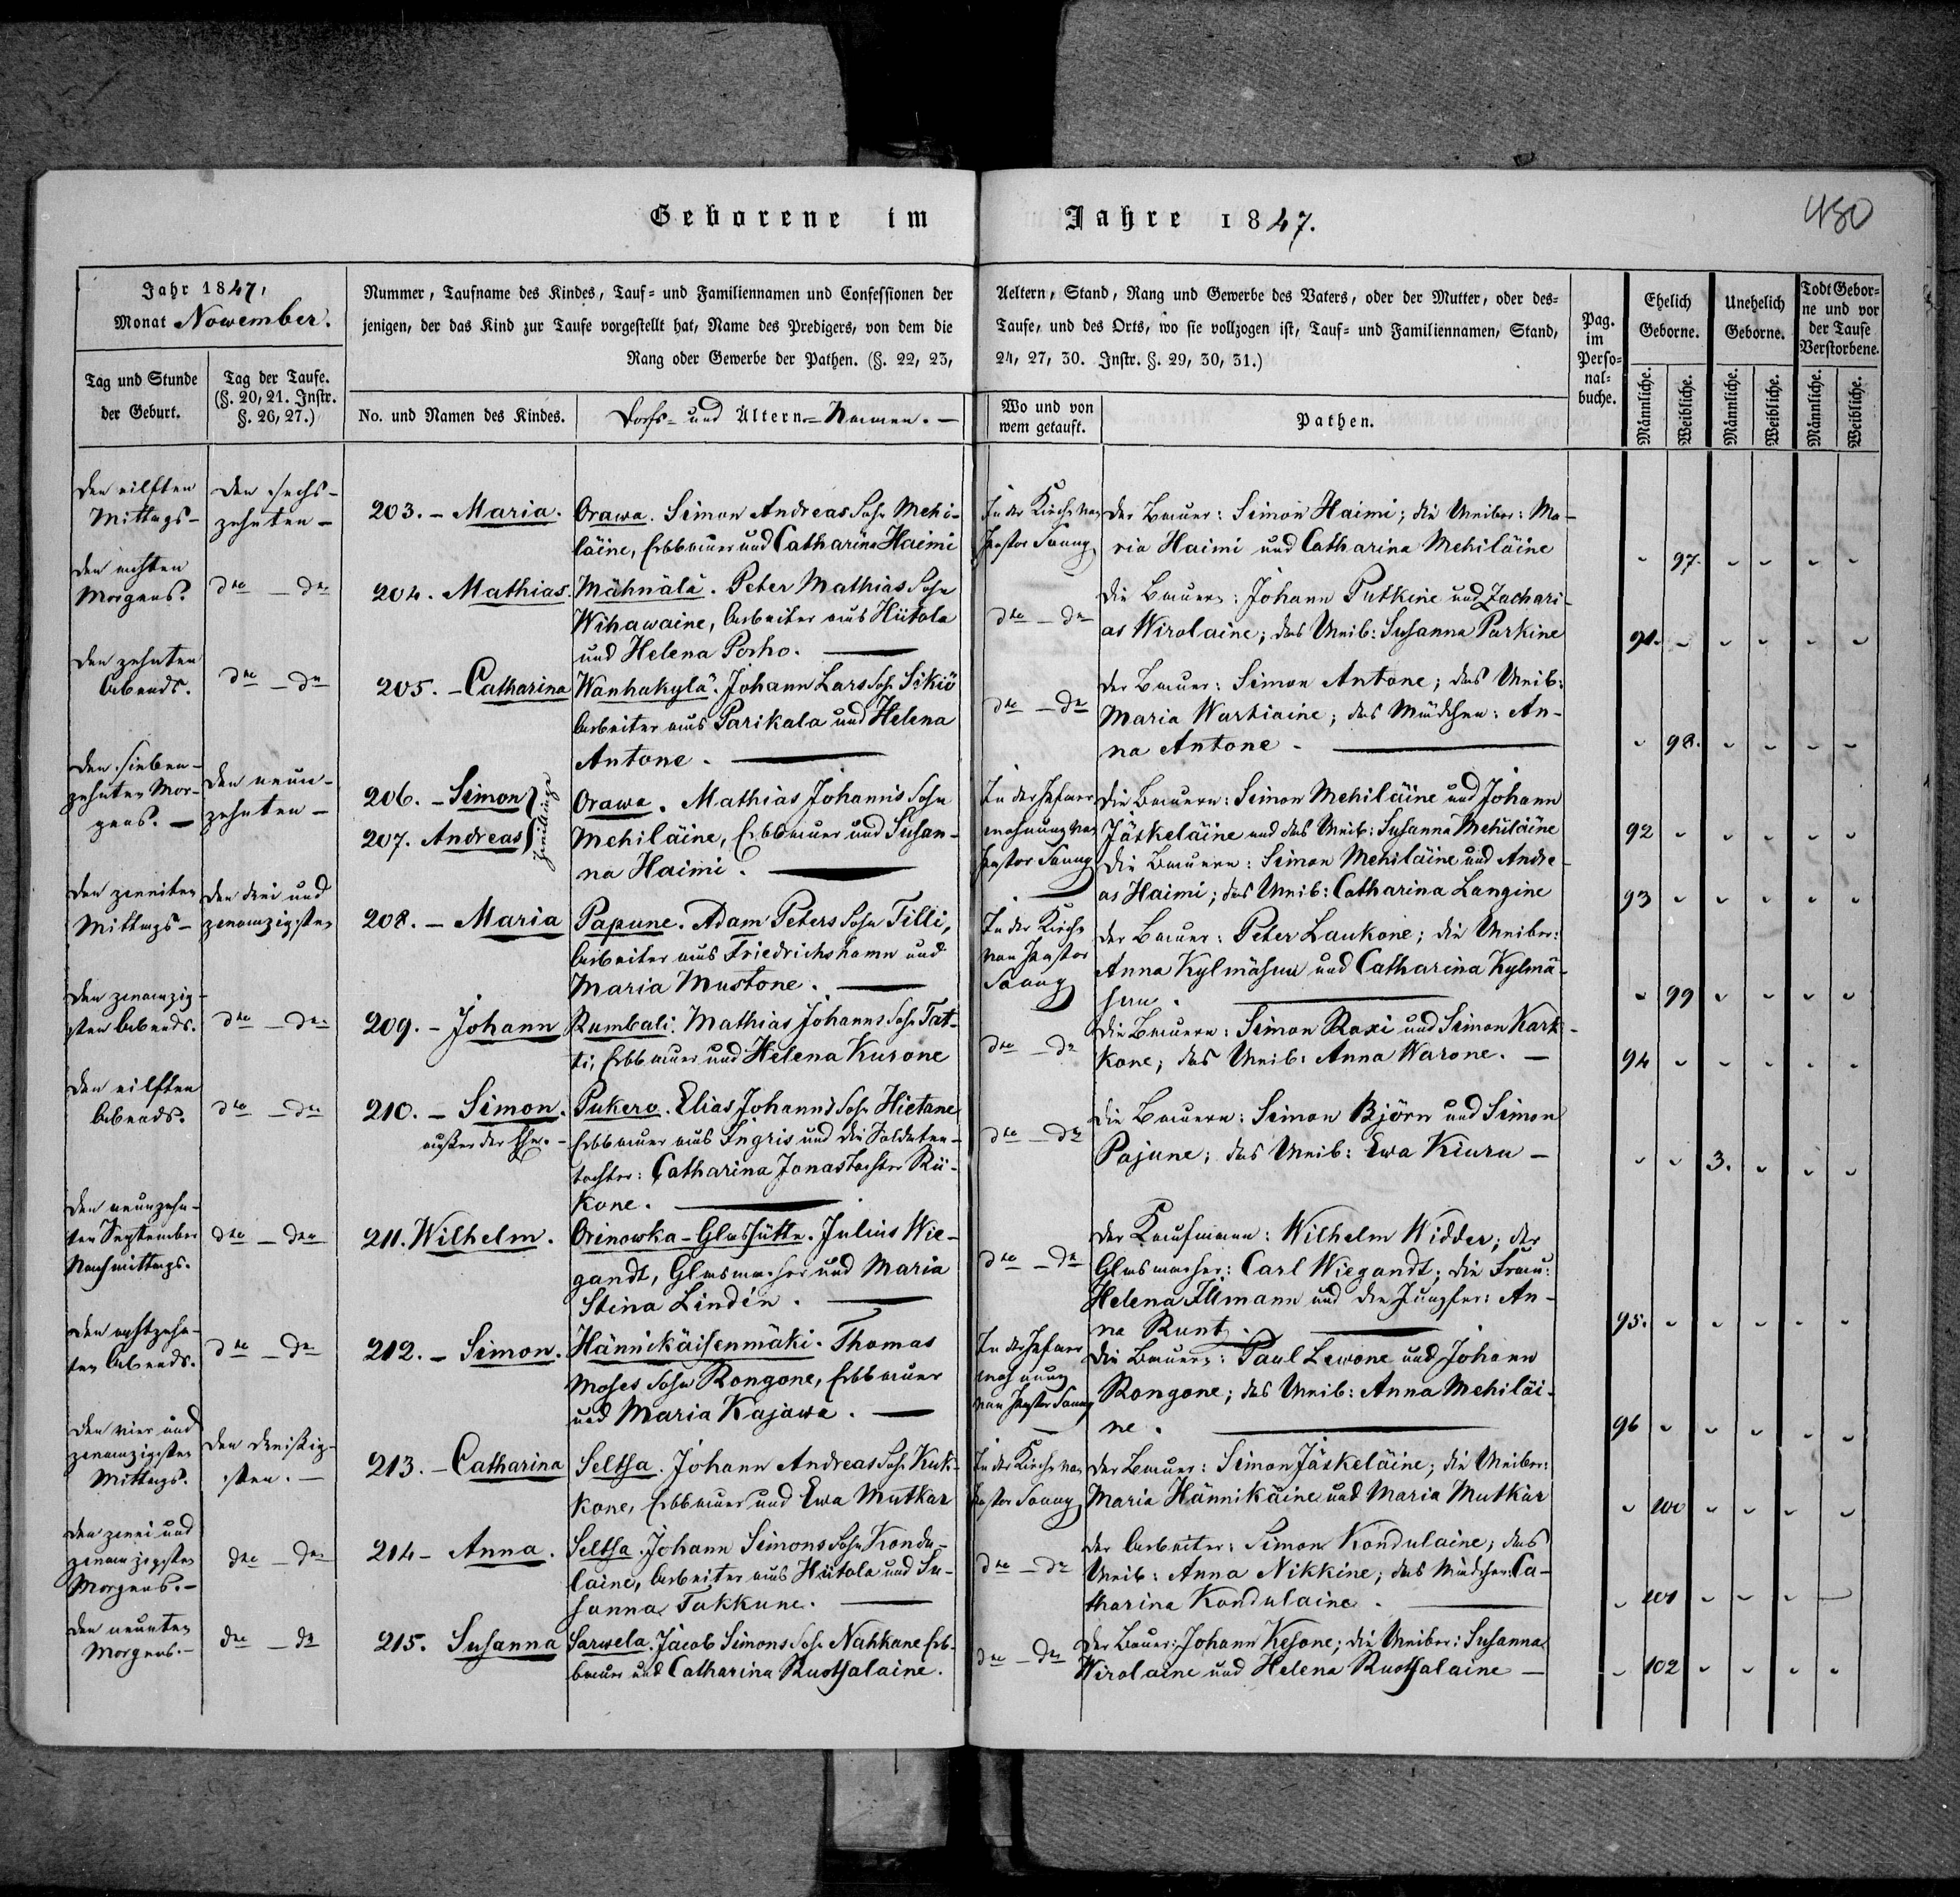 Geborene im Jahre 1847.
480
Jahr 1847,
Monat November.
Nummer, Taufname des Kindes, Tauf- und Familiennamen und Confessionen der Aeltern, Stand, Rang und Gewerbe des Vaters, oder der Mutter, oder des-
jenigen, der das Kind zur Taufe vorgestellt hat, Name des Predigers, von dem die Taufe, und des Orts, wo sie vollzogen ist, Tauf- und Familiennamen, Stand,
Rang oder Gewerbe der Pathen. (§. 22, 23, 24, 27, 30. Instr. §. 29, 30, 31.)
Tag und Stunde
der Geburt.
Tag der Taufe.
(§. 20, 21. Instr.
§. 26, 27.)
No. und Namen des Kindes.
Dorfs- und Ältern-Namen. —
Wo und von
wem getauft.
Pathen.
Pag.
im
Perso-
nal-
buche.
Ehelich
Geborne.
Unehelich
Geborne.
Todt Gebor-
ne und vor
der Taufe
Verstorbene.
Männliche.
Weibliche.
Männliche.
Weibliche.
Männliche.
Weibliche.
den eilften
Mittags —
den sechs-
zehnten —
203. — Maria.
Orawa. Simon Andreas Sohn Mehi-
läine, Erbbauer und Catharina Haimi
In der Kirche von
Pastor Saang
der Bauer: Simon Haimi; die Weiber: Ma-
ria Haimi und Catharina Mehiläine
97.
den achten
Morgens.
dto — do
204. Mathias.
Mähnälä. Peter Mathias Sohn
Wihawaine, Arbeiter aus Hiitola
und Helena Porho. —
dto — do
die Bauern: Johann Putkine und Zachari-
as Wirolaine; das Weib: Susanna Parkine
91.
den zehnten
Abends.
dto — do
205. — Catharina
Wanhakylä. Johann Lars Sohn Sikiö
Arbeiter aus Parikala und Helena
Antone. —
dto — do
der Bauer: Simon Antone; das Weib:
Maria Wartiaine; das Mädchen: An-
na Antone. —
98.
den sieben-
zehnten Mor-
gens. —
den neun-
zehnten —
206. — Simon
207. Andreas
Zwillinge
Orawa. Mathias Johanns Sohn
Mehiläine, Erbbauer und Susan-
na Haimi. —
In der Pfarr-
wohnung von
Pastor Saang
die Bauern: Simon Mehiläine und Johann
Jäskeläine und das Weib: Susanna Mehiläine
92
die Bauern: Simon Mehiläine und Andre-
as Haimi; das Weib: Catharina Langine
93
den zweiten
Mittags —
den drei und
zwanzigsten
208. — Maria
Papune. Adam Peters Sohn Tilli,
Arbeiter aus Friedrichshamn und
Maria Mustone. —
In der Kirche
von Pastor
Saang
der Bauer: Peter Laukone; die Weiber:
Anna Kylmäsuu und Catharina Kylmä-
suu. —
99
den zwanzig-
sten Abends.
dto — do
209. — Johann
Rumbali. Mathias Johanns Sohn Tat-
ti, Erbbauer und Helena Kurone
dto — do
die Bauern: Simon Raxi und Simon Kark-
kone; das Weib: Anna Warone. —
94
den eilften
Abends.
dto — do
210. — Simon.
außer der Ehe. —
Pukero. Elias Johanns Sohn Hietane
Erbbauer aus Ingris und die Soldaten-
tochter: Catharina Jonastochter Rii-
kone. —
dto — do
die Bauern: Simon Björn und Simon
Pajune; das Weib: Ewa Kiuru —
3.
den neunzehn-
ten September
Nachmittags.
dto — do
211. Wilhelm.
Orinowka-Glashütte. Julius Wie-
gandt, Glasmacher und Maria
Stina Lindén. —
dto — do
der Kaufmann: Wilhelm Widder; der
Glasmacher: Carl Wiegandt; die Frau:
Helena Illmann und die Jungfer: An-
na Runt. —
95.
den achtzehn-
ten Abends.
dto — do
212. — Simon.
Hännikäisenmäki. Thomas
Moses Sohn Rongone, Erbbauer
und Maria Kajawa. —
In der Pfarr-
wohnung
von Pastor Saang
die Bauern: Paul Lewone und Johann
Rongone; das Weib: Anna Mehiläi-
ne. —
96
den vier und
zwanzigsten
Mittags.
den dreißig-
sten. —
213. — Catharina
Seltsa. Johann Andreas Sohn Kuk-
kone, Erbbauer und Ewa Mutkar
In der Kirche von
Pastor Saang
der Bauer: Simon Jäskeläine; die Weiber:
Maria Hännikäine und Maria Mutkar
100
den zwei und
zwanzigsten
Morgens. —
dto — do
214 — Anna.
Seltsa. Johann Simons Sohn Kondu-
laine, Arbeiter aus Hiitola und Su-
sanna Takkune. —
dto — do
der Arbeiter: Simon Kondulaine; das
Weib: Anna Nikkine; das Mädchen: Ca-
tharina Kondulaine. —
101
den neunten
Morgens. —
dto — do
215. Susanna
Sarwela. Jacob Simons Sohn Nahkane Erb-
bauer und Catharina Rustsalaine.
dto — do
der Bauer: Johann Kesone; die Weiber: Susanna
Wirolaine und Helena Rustsalaine —
102